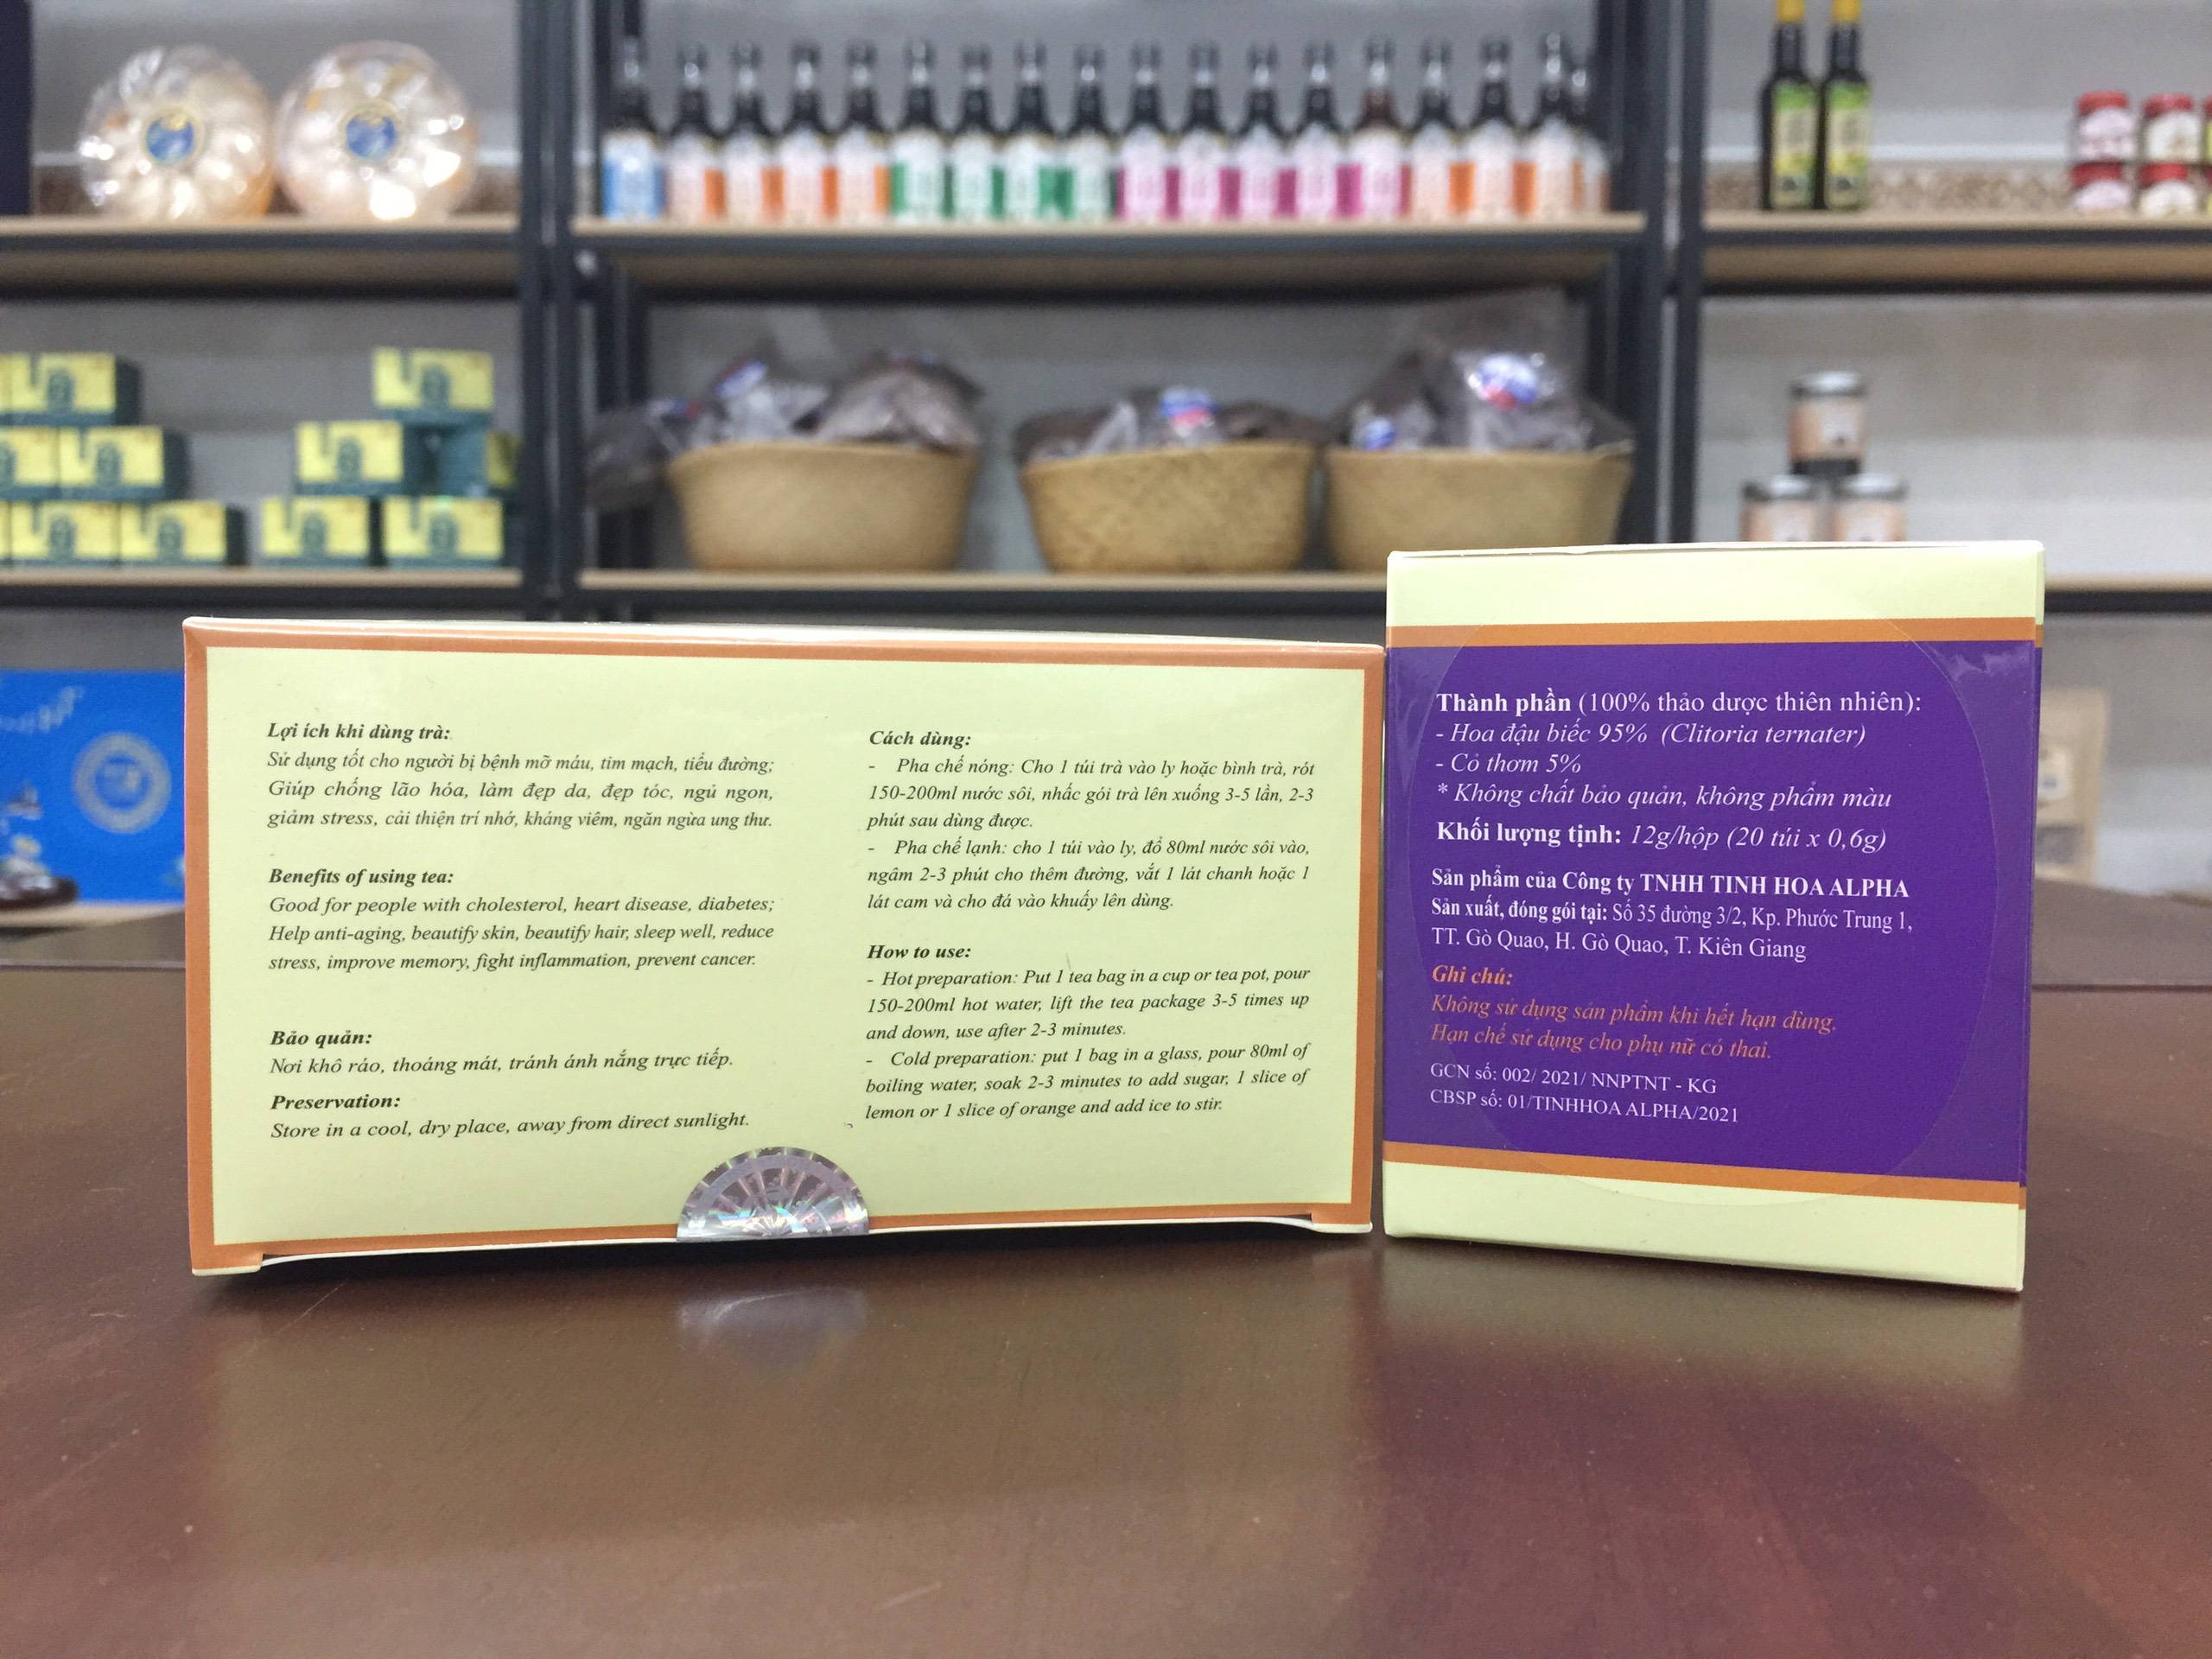 Lợi ích khi dùng trà:
Sử dụng tốt cho người bị bệnh mỡ máu, tim mạch, tiểu đường;
Giúp chống lão hóa, làm đẹp da, đẹp tóc, ngủ ngon,
giảm stress, cải thiện trí nhớ, kháng viêm, ngăn ngừa ung thư.
Benefits of using tea:
Good for people with cholesterol, heart disease, diabetes;
Help anti-aging, beautify skin, beautify hair, sleep well, reduce
stress, improve memory, fight inflammation, prevent cancer.
Bảo quản:
Nơi khô ráo, thoáng mát, tránh ánh nắng trực tiếp.
Preservation:
Store in a cool, dry place, away from direct sunlight.
Cách dùng:
- Pha chế nóng: Cho 1 túi trà vào ly hoặc bình trà, rót
150-200ml nước sôi, nhấc gói trà lên xuống 3-5 lần, 2-3
phút sau dùng được.
- Pha chế lạnh: cho 1 túi vào ly, đổ 80ml nước sôi vào,
ngâm 2-3 phút cho thêm đường, vắt 1 lát chanh hoặc 1
lát cam và cho đá vào khuấy lên dùng.
How to use:
- Hot preparation: Put 1 tea bag in a cup or tea pot, pour
150-200ml hot water, lift the tea package 3-5 times up
and down, use after 2-3 minutes.
- Cold preparation: put 1 bag in a glass, pour 80ml of
boiling water, soak 2-3 minutes to add sugar, 1 slice of
lemon or 1 slice of orange and add ice to stir.
Thành phần (100% thảo dược thiên nhiên):
- Hoa đậu biếc 95% (Clitoria ternater)
- Cỏ thơm 5%
* Không chất bảo quản, không phẩm màu
Khối lượng tịnh: 12g/hộp (20 túi x 0,6g)
Sản phẩm của Công ty TNHH TINH HOA ALPHA
Sản xuất, đóng gói tại: Số 35 đường 3/2, Kp. Phước Trung 1,
TT. Gò Quao, H. Gò Quao, T. Kiên Giang
Ghi chú:
Không sử dụng sản phẩm khi hết hạn dùng.
Hạn chế sử dụng cho phụ nữ có thai.
GCN số: 002/ 2021/ NNPTNT - KG
CBSP số: 01/TINHHOA ALPHA/2021